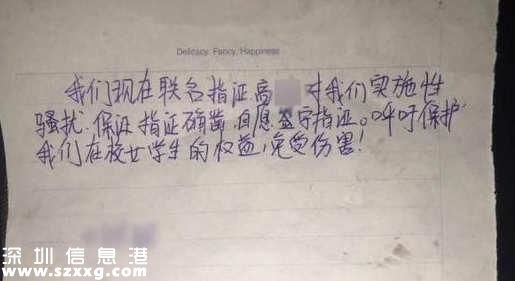 Delicacy, Fancy, Happiness
我们现在联名指证高 对我们实施性
骚扰,保证指证确凿,自愿签字指证。呼吁保护
我们在校女学生的权益,免受伤害!
深圳信息港
www.szxxg.com